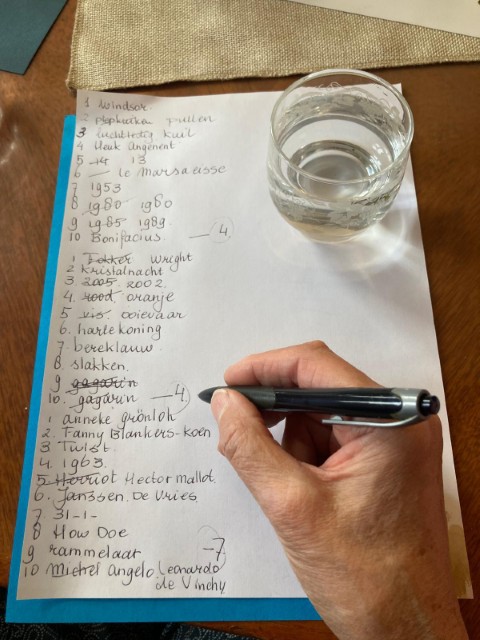 1 Windsor.
2 pullen
3 luchtledig kuil
4 Henk Angenent
5 14 13
6 — le Marsaeisse
7 1953
8 1980 1960
9 1985 1989
10 Bonifacius. — 4.
1 Fokker wright
2 Kristalnacht
3. 2005. 2002.
4. rood oranje
5 vis ooievaar
6. hartekoning
7. bereklauw.
8. slakken.
9 gagarin
10. gagarin — 4.
1 anneke grönloh
2. Fanny Blankers-koen
3 Twist.
4. 1963.
5 Herriot Hector mallot.
6. Janssen. De Vries.
7 31-1-
8 How Doe
9 rammelaar -7
10 Michel angelo Leonardo
de Vinchy